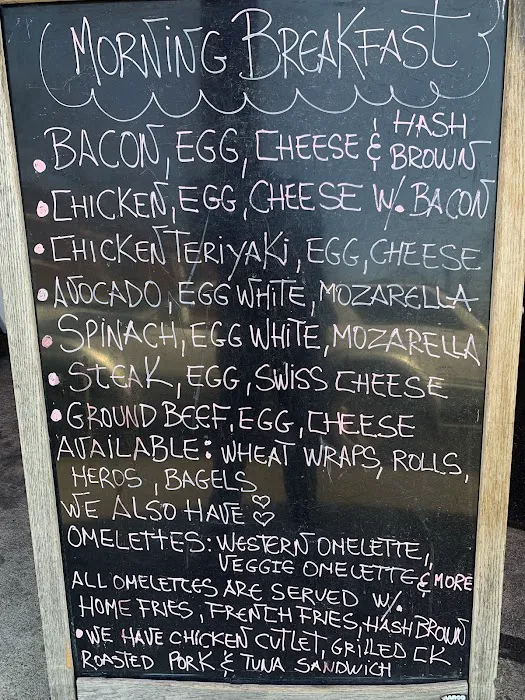 MORNING BREAKFAST
• BACON, EGG, CHEESE & HASH BROWN
• CHICKEN, EGG, CHEESE W. BACON
• CHICKEN TERIYAKI, EGG, CHEESE
• AVOCADO, EGG WHITE, MOZARELLA
• SPINACH, EGG WHITE, MOZARELLA
• STEAK, EGG, SWISS CHEESE
• GROUND BEEF, EGG, CHEESE
AVAILABLE: WHEAT WRAPS, ROLLS,
HEROS, BAGELS
WE ALSO HAVE ♡
OMELETTES: WESTERN OMELETTE,
VEGGIE OMELETTE & MORE
ALL OMELETTES ARE SERVED W.
HOME FRIES, FRENCH FRIES, HASH BROWN
• WE HAVE CHICKEN CUTLET, GRILLED CK
ROASTED PORK & TUNA SANDWICH